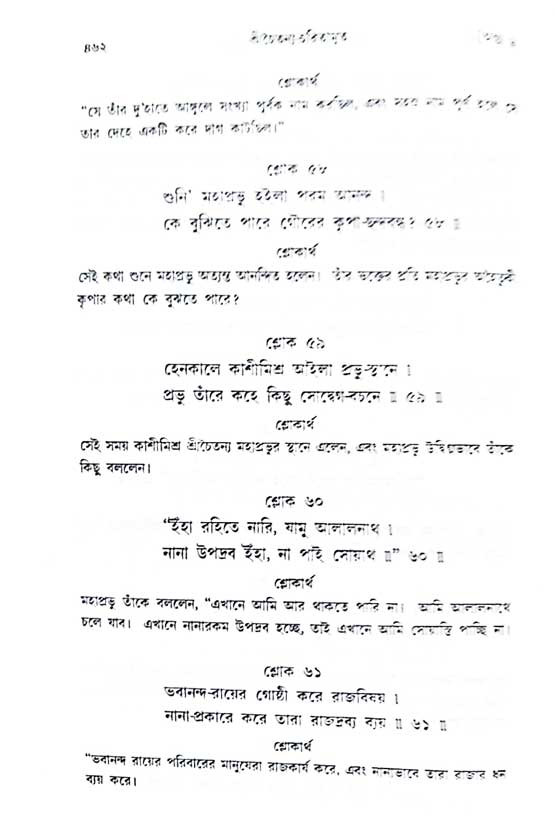 ৪৬২
শ্রীচৈতন্য-চরিতামৃত
শ্লোকার্থ
“সে তাঁর দু'হাতে আঙ্গুলে সংখ্যা পূর্বক নাম করছিল, এবং সহস্র নাম পূর্ণ হলে সে
তার দেহে একটি করে দাগ কাটছিল।”
শ্লোক ৫৮
শুনি' মহাপ্রভু হইলা পরম আনন্দ ।
কে বুঝিতে পারে গৌরের কৃপা-ছন্দবন্ধ? ৫৮ ॥
শ্লোকার্থ
সেই কথা শুনে মহাপ্রভু অত্যন্ত আনন্দিত হলেন। তাঁর ভক্তের প্রতি মহাপ্রভুর অহৈতুকী
কৃপার কথা কে বুঝতে পারে?
শ্লোক ৫৯
হেনকালে কাশীমিশ্র আইলা প্রভু-স্থানে ।
প্রভু তাঁরে কহে কিছু সোদ্বেগ-বচনে ॥ ৫৯ ॥
শ্লোকার্থ
সেই সময় কাশীমিশ্র শ্রীচৈতন্য মহাপ্রভুর স্থানে এলেন, এবং মহাপ্রভু উদ্বিগ্নভাবে তাঁকে
কিছু বললেন।
শ্লোক ৬০
“ইঁহা রহিতে নারি, যামু আলালনাথ ।
নানা উপদ্রব ইঁহা, না পাই সোয়াথ ॥” ৬০ ॥
শ্লোকার্থ
মহাপ্রভু তাঁকে বললেন, “এখানে আমি আর থাকতে পারি না। আমি আলালনাথে
চলে যাব। এখানে নানারকম উপদ্রব হচ্ছে, তাই এখানে আমি সোয়াস্তি পাচ্ছি না।
শ্লোক ৬১
ভবানন্দ-রায়ের গোষ্ঠী করে রাজবিষয় ।
নানা-প্রকারে করে তারা রাজদ্রব্য ব্যয় ॥ ৬১ ॥
শ্লোকার্থ
“ভবানন্দ রায়ের পরিবারের মানুষেরা রাজকার্য করে, এবং নানাভাবে তারা রাজার ধন
ব্যয় করে।